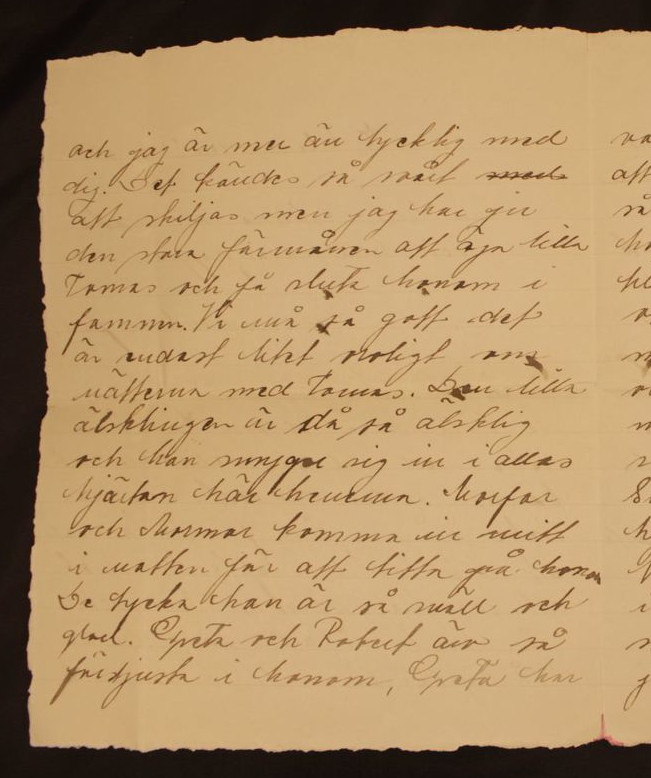 och jag är mer än lycklig med va
dig. Det kändes så svårt med att
att skiljas men jag har ju så
den stora förmånen att äga lilla
Tomas och få sluta honom i
famnen. Vi må så gott det
är endast litet oroligt om
nätterna med Tomas. Den lilla
älsklingen är då så älsklig
och han smyger sig in i allas
hjärtan här hemma. Morfar
och Mormor komma in mitt
i natten för att titta på honom
De tycka han är så snäll och
glad. Greta och Robert äro så
förtjusta i honom, Greta har